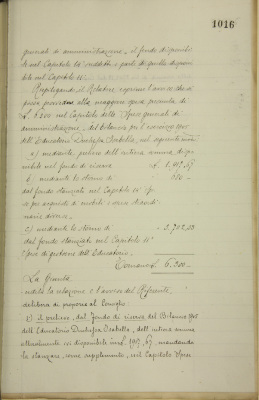 1016
generali di amministrazione, il fondo disponibi-
le nel Capitolo 64 suddetto e parte di quello disponi-
bile nel Capitolo 11.
Riepilogando il Relatore esprime l'avviso che si
possa provvedere alla maggiore spesa presunta di
£ 6.200 nel Capitolo delle "Spese generali di
amministrazione" del bilancio per l'esercizio 1908
dell'Educatorio Duchessa Isabella, nel seguente modo
a) mediante prelievo dell'intera somma dispo-
nibile nel fondo di riserva £
b) mediante lo storno di
dal fondo stanziato nel Capitolo
se per acquisto di mobili e spese straordi-
narie diverse.
c) mediante lo storno di
dal fondo stanziato nel Capitolo 11°
Spese di gestione dell'Educatorio.
Tornano £ 6.200
La Giunta
udita la relazione e l'avviso del Riferente
delibera di proporre al Consiglio:
1) il prelievo dal fondo di riserva del Bilancio 1908
dell'Educatorio Duchessa Isabella, dell'intera somma
attualmente ivi disponibile in mandando
la stanzare, come supplemento, nel Capitolo Spese